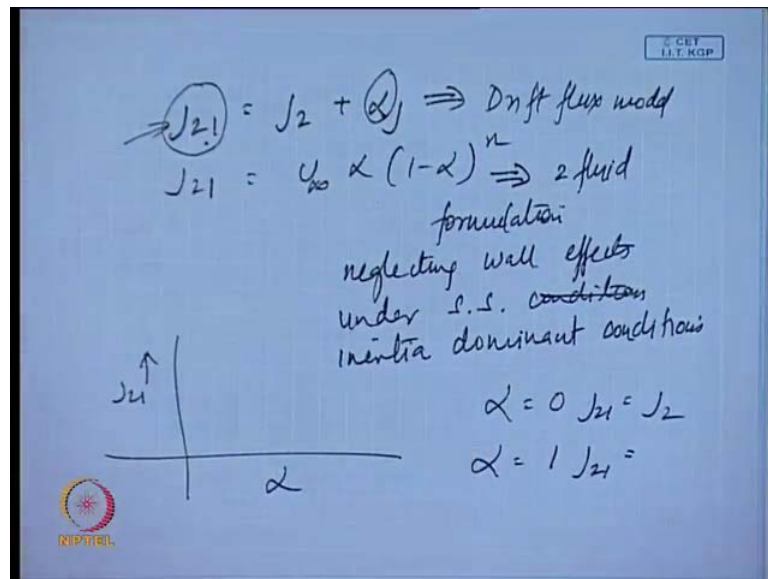 © CET
I.I.T. KGP
J21 = J2 + αJ ⇒ Drift flux model
J21 = U∞ α (1-α)^n ⇒ 2 fluid
formulation
neglecting wall effects
under S.S. condition
inertia dominant conditions
J21 ↑
α
α = 0 J21 = J2
α = 1 J21 =
NPTEL